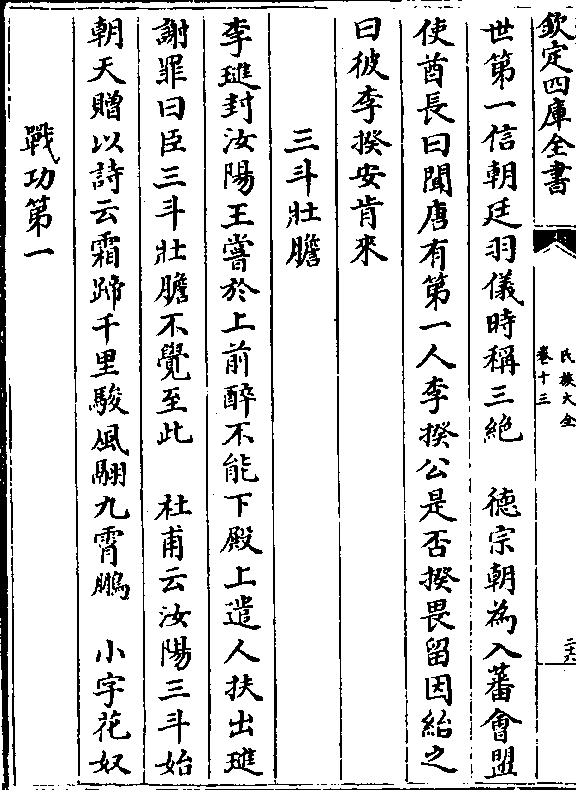 欽定四庫全書
氏族大全
卷十三
二六
世第一信朝廷羽儀時稱三絶　德宗朝為入蕃會盟
使酋長曰聞唐有第一人李揆公是否揆畏留因紿之
曰彼李揆安肯來
三斗壯膽
李璡封汝陽王嘗於上前醉不能下殿上遣人扶出璡
謝罪曰臣三斗壯膽不覺至此　杜甫云汝陽三斗始
朝天贈以詩云霜蹄千里駿風翮九霄鵬　小字花奴
戰功第一